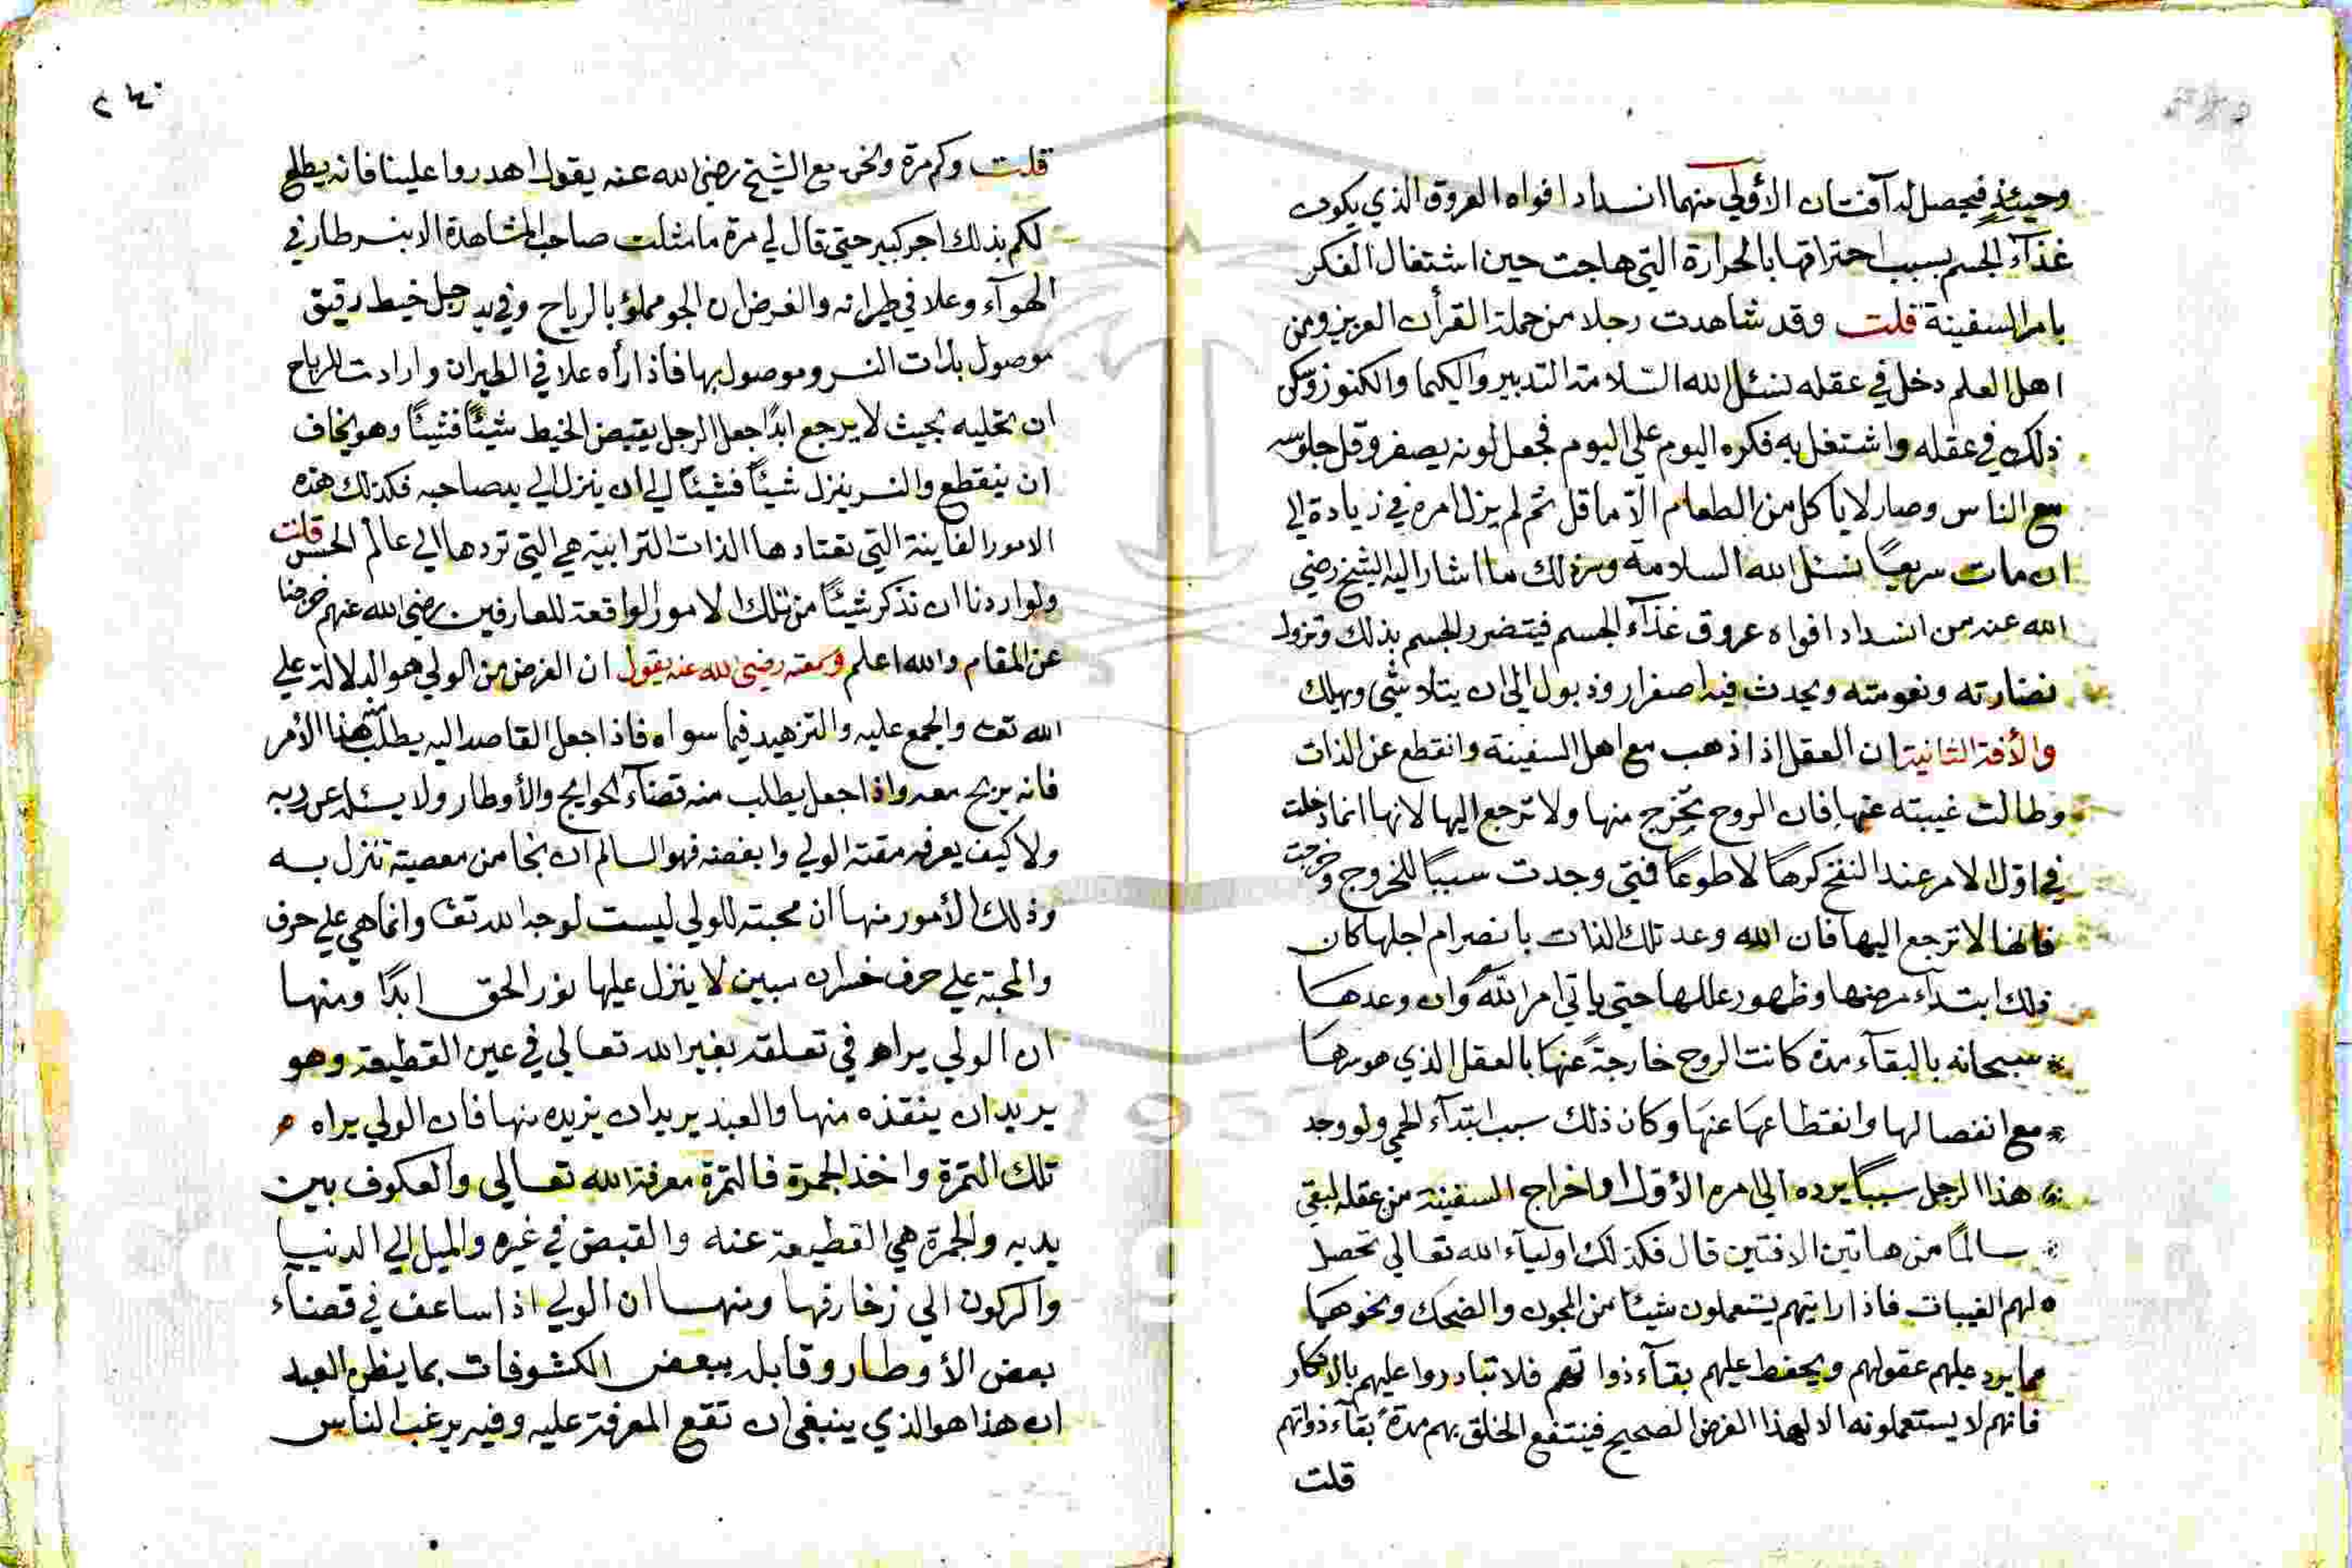 وحينئذ فيحصل له آفتان الأولى منهما انسداد افواه العروق الذي يكون
غذآء الجسم بسبب احتراقها بالحرارة التي هاجت حين اشتغال الفكر
بامر السفينة قلت وقد شاهدت رجلا من حملة القرأن العزيز ومن
اهل العلم دخل في عقله نسئل الله السّلامة التدبير والكيميا والكنوز وسكن
ذلك في عقله واشتغل به فكره اليوم على اليوم فجعل لونه يصفر وقل جلوسه
مع الناس وصار لا ياكل من الطعام الّا ما قل ثم لم يزل امره في زيادة الى
ان مات سريعًا نسئل الله السلامة وسر ذلك ما اشار اليه الشيخ رضي
الله عنه من انسداد افواه عروق غذآء الجسم فيتضرر الجسم بذلك وتزول
نضارته ونعومته ويحدث فيه اصفرار وذبول الى ان يتلاشى ويهلك
والأفة الثانية ان العقل اذا ذهب مع اهل السفينة وانقطع عن الذات
وطالت غيبته عنها فان الروح تخرج منها ولا ترجع اليها لانها انما دخلت
في اوّل الامر عند النفخ كرهًا لا طوعًا فمتى وجدت سببًا للخروج وخرجت
فانها لا ترجع اليها فان الله وعد تلك الذات بانصرام اجلها كان
ذلك ابتدآء مرضها وظهور عللها حتى ياتي امر الله وان وعدها
سبحانه بالبقآء مدة كانت الروح خارجة عنها بالعقل الذي هو سرها
مع انفصالها وانقطاعها عنها وكان ذلك سبب ابتدآء الحمي ولو وجد
هذا الرجل سببًا يرده الى امره الأول او اخراج السفينة من عقله لبقي
سالمًا من هاتين الافتين قال فكذلك اوليآء الله تعالى تحصل
لهم الغيبات فاذا رايتهم يستعملون شيئا من المجون والضحك ونحوهما
مما يرد عليهم عقولهم ويحفظ عليهم بقآء ذواتهم فلا تبادروا عليهم بالانكار
فانهم لا يستعملونه الا لهذا الغرض الصحيح فينتفع الخلق بهم مدة بقآء ذواتهم
قلت
٢٤٠
قلت وكم مرة ونحن مع الشيخ رضي الله عنه يقول اهدروا علينا فانه يطلع
لكم بذلك اجر كبير حتى قال لي مرة ما مثلت صاحب المشاهدة الا بنسر طار في
الهوآء وعلا في طيرانه والغرض ان الجو مملؤ بالرياح وفي يد رجل خيط رقيق
موصول بذات النسر وموصول بها فاذا رأه علا في الطيران وارادت الرياح
ان تخليه بحيث لا يرجع ابدًا جعل الرجل يقبض الخيط شيئًا فشيئًا وهو يخاف
ان ينقطع والنسر ينزل شيئًا فشيئًا الى ان ينزل الى يد صاحبه فكذلك هذه
الامور الفانية التي تعتادها الذات الترابية هي التي تردها الى عالم الحس قلت
ولو اردنا ان نذكر شيئًا من تلك الامور الواقعة للعارفين رضي الله عنهم خرجنا
عن المقام والله اعلم وسمعته رضي الله عنه يقول ان الغرض من الولي هو الدلالة على
الله تعـ والجمع عليه والتزهيد فيما سواه فاذا جعل القاصد اليه يطلب منه هذا الأمر
فانه يربح معه واذا جعل يطلب منه قضآء الحوايج والأوطار ولا يسئله عن ربه
ولا كيف يعرفه مقته الولي وابغضه فهو السالم ان نجا من معصية تنزل به
وذلك لأمور منها ان محبته للولي ليست لوجه الله تعـ وانما هي على حرف
والمحبة على حرف خسران مبين لا ينزل عليها نور الحق ابدًا ومنها
ان الولي يراه في تعلقه بغير الله تعالى في عين القطيعة وهو
يريد ان ينقذه منها والعبد يريد ان يزيده منها فان الولي يراه
تلك التمرة واخذ الجمرة فالتمرة معرفة الله تعالى والعكوف بين
يديه والجمرة هي القطيعة عنه والقبض في غيره والميل الى الدنيا
والركون الى زخارفها ومنها ان الولي اذا ساعف في قضآء
بعض الأوطار وقابله ببعض الكشوفات بما يظن العبد
ان هذا هو الذي ينبغي ان تقع المعرفة عليه وفيه يرغب الناس